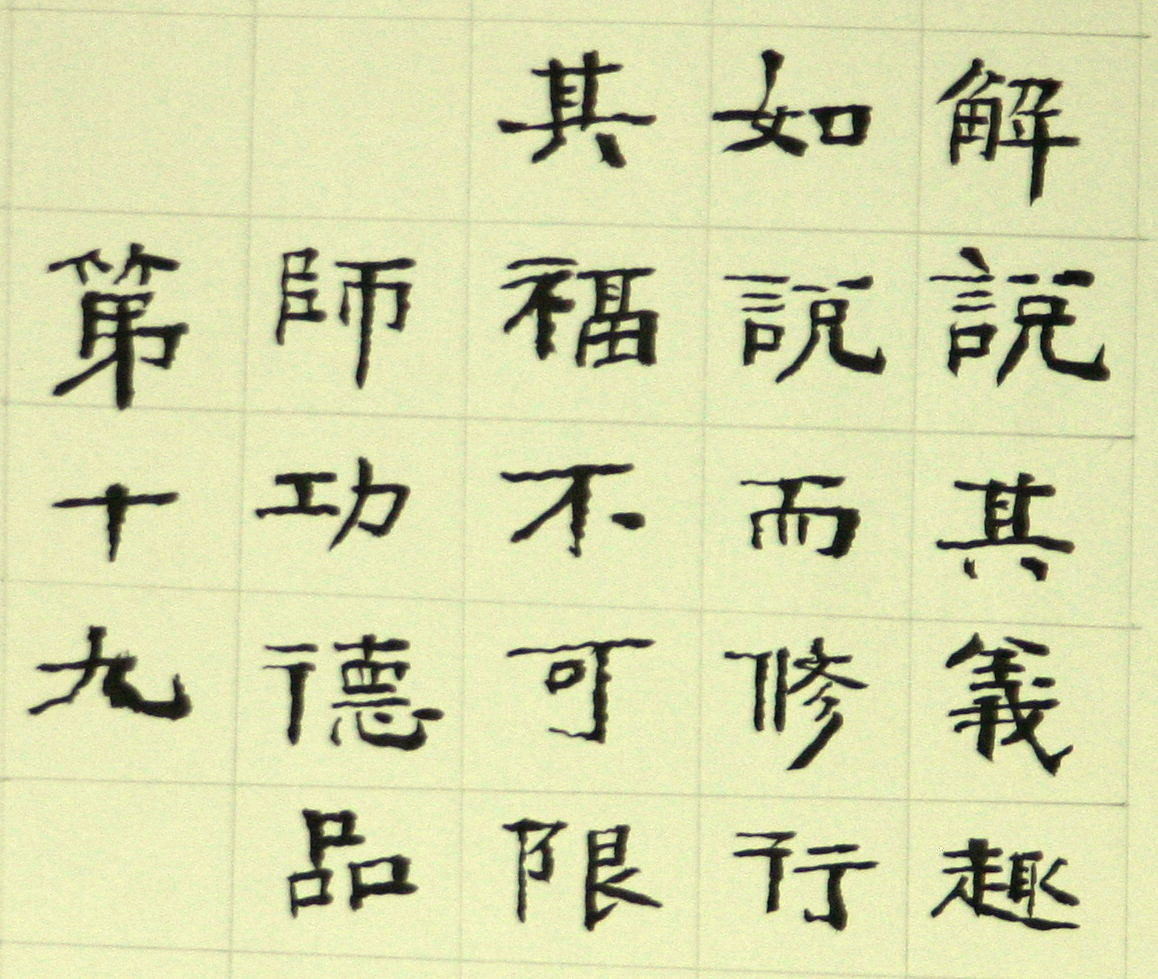 解說其義趣
如說而修行
其福不可限
師功德品
第十九